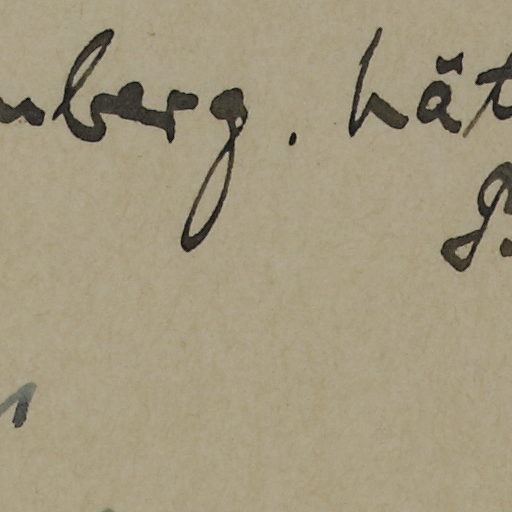 nberg. hät
P.